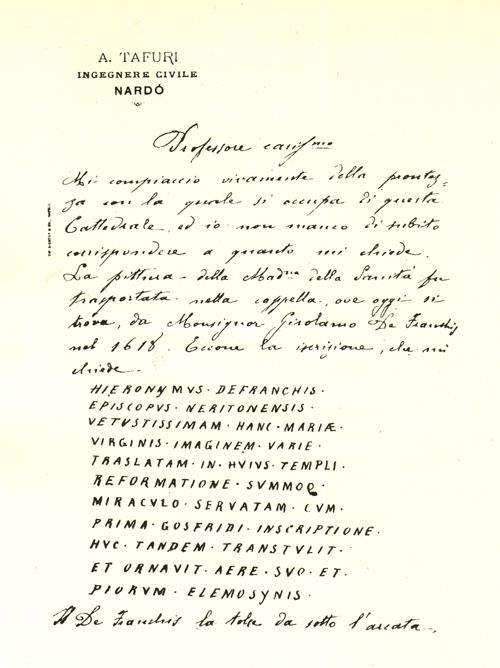 A. TAFURI
INGEGNERE CIVILE
NARDÓ
Professore cariss.mo
Mi compiaccio vivamente della prontez=
za con la quale si occupa di questa
Cattedrale, ed io non manco di subito
corrispondere a quanto mi chiede.
La pittura della Mad.na della Sanità fu
trasportata nella cappella, ove oggi si
trova, da Monsignor Girolamo De Franchis
nel 1618. Eccone la iscrizione, che mi
chiede.
HIERONYMVS · DEFRANCHIS ·
EPISCOPVS · NERITONENSIS ·
VETVSTISSIMAM · HANC · MARIÆ ·
VIRGINIS · IMAGINEM · VARIE ·
TRASLATAM · IN · HVIVS · TEMPLI ·
REFORMATIONE · SVMMOQ ·
MIRACVLO · SERVATAM · CVM ·
PRIMA · GOSFRIDI · INSCRIPTIONE ·
HVC · TANDEM · TRANSTVLIT ·
ET · ORNAVIT · AERE · SVO · ET ·
PIORVM · ELEMOSYNIS ·
Il De Franchis la tolse da sotto l'arcata,